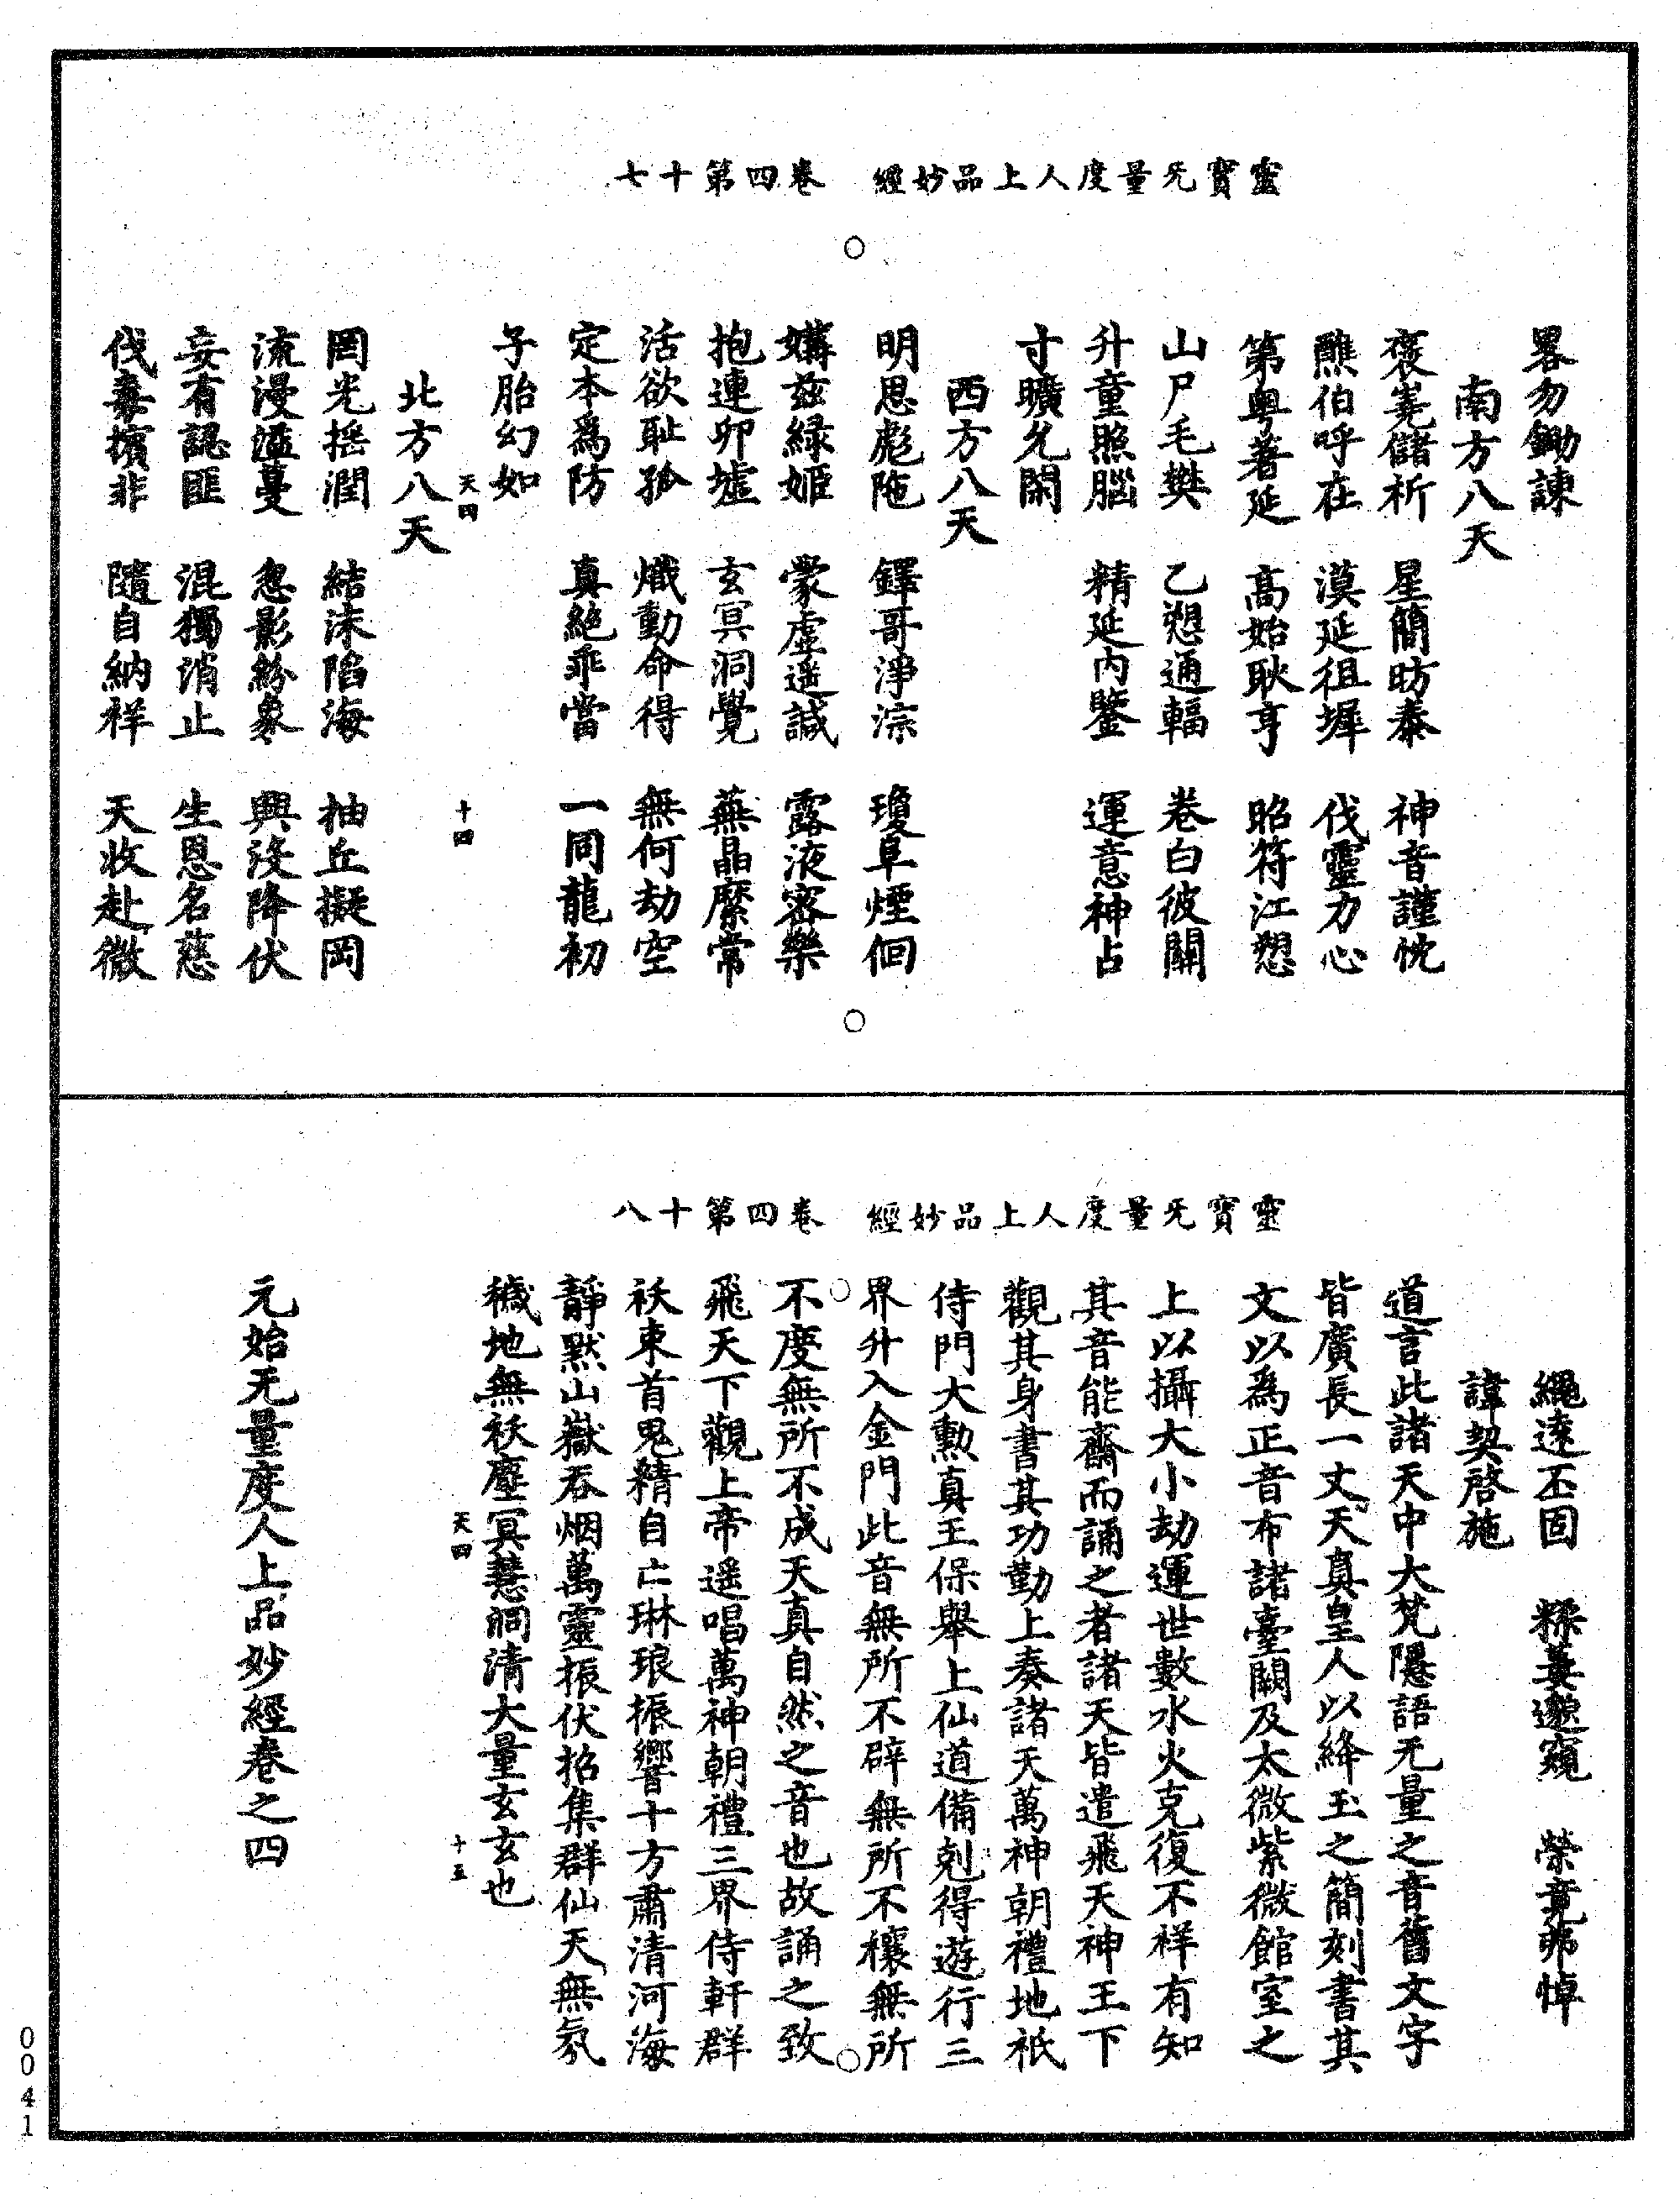 靈寶无量度人上品妙經　卷四第十七
畧勿鋤諫
南方八天
褒嵬儲祈　星簡昉泰　神音謹忱
醮伯呼在　漠延徂墀　伐靈力心
第粤著延　高始耿亨　昭符江愬
山尸毛樊　乙愬通輻　卷白彼關
升童照腦　精延內鑒　運意神占
寸曠允閑
西方八天
明恩彪陁　鐸哥淨淙　瓊阜煙佪
媾茲緑姬　蒙虛遥誠　露液密樂
抱連卯墟　玄冥洞覺　蕪晶縻常
活欲耻矜　熾動命得　無何劫空
定本為防　真絶乖當　一同龍初
子胎幻如
天四　十四
北方八天
罔光揺潤　結沫陷海　抽丘擬岡
流漫溘蔓　忽影紛象　興没降伏
妄有認匪　混獨消止　生恩名慈
伐毒擯非　隨自納祥　天收赴微
靈寶无量度人上品妙經　卷四第十八
繩逺丕固　釋姜邈窺　榮竟弗悼
諱契啓施
道言此諸天中大梵隱語无量之音舊文字
皆廣長一丈天真皇人以絳玉之簡刻書其
文以為正音布諸臺闕及太微紫微館室之
上以攝大小劫運世數水火克復不祥有知
其音能齋而誦之者諸天皆遣飛天神王下
觀其身書其功勤上奏諸天萬神朝禮地祇
侍門大勲真王保舉上仙道備剋得遊行三
界升入金門此音無所不辟無所不禳無所
不度無所不成天真自然之音也故誦之致
飛天下觀上帝遥唱萬神朝禮三界侍軒群
袄束首鬼精自亡琳琅振響十方肅清河海
靜默山嶽吞烟萬靈振伏招集群仙天無氛
穢地無袄塵冥慧洞清大量玄玄也
天四　十五
元始无量度人上品妙經卷之四
0041